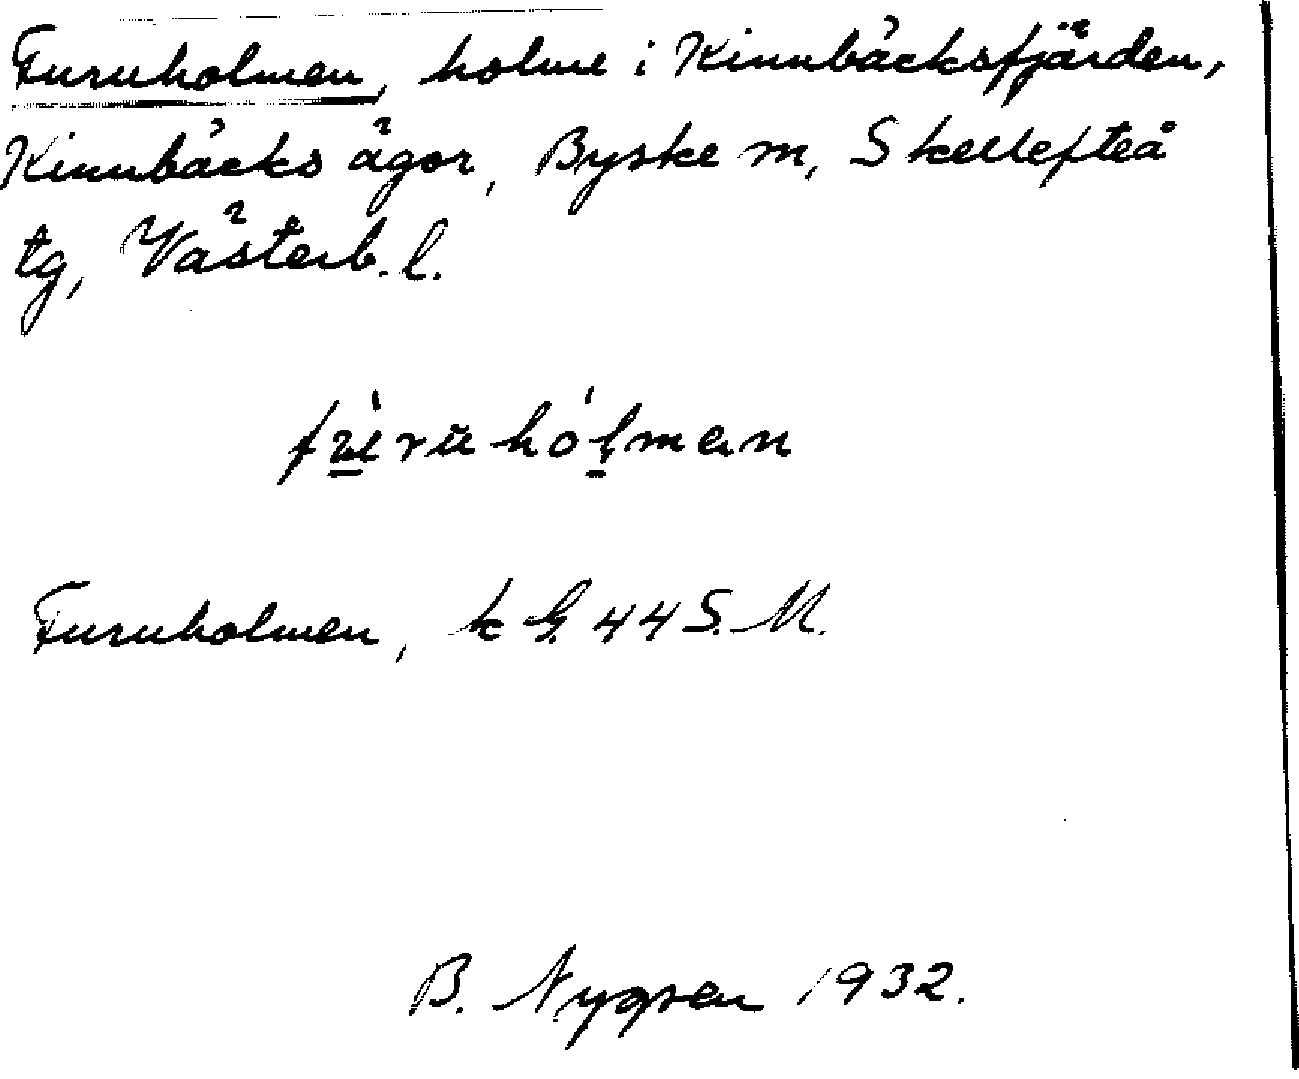 Furuholmen, holme i Kinnbäcksfjärden,
Kinnbäcks ägor, Byske sn, Skellefteå
tg, Västerb. l.
Furuholmen, k G. 44 S. M.
B. Nygren 1932.